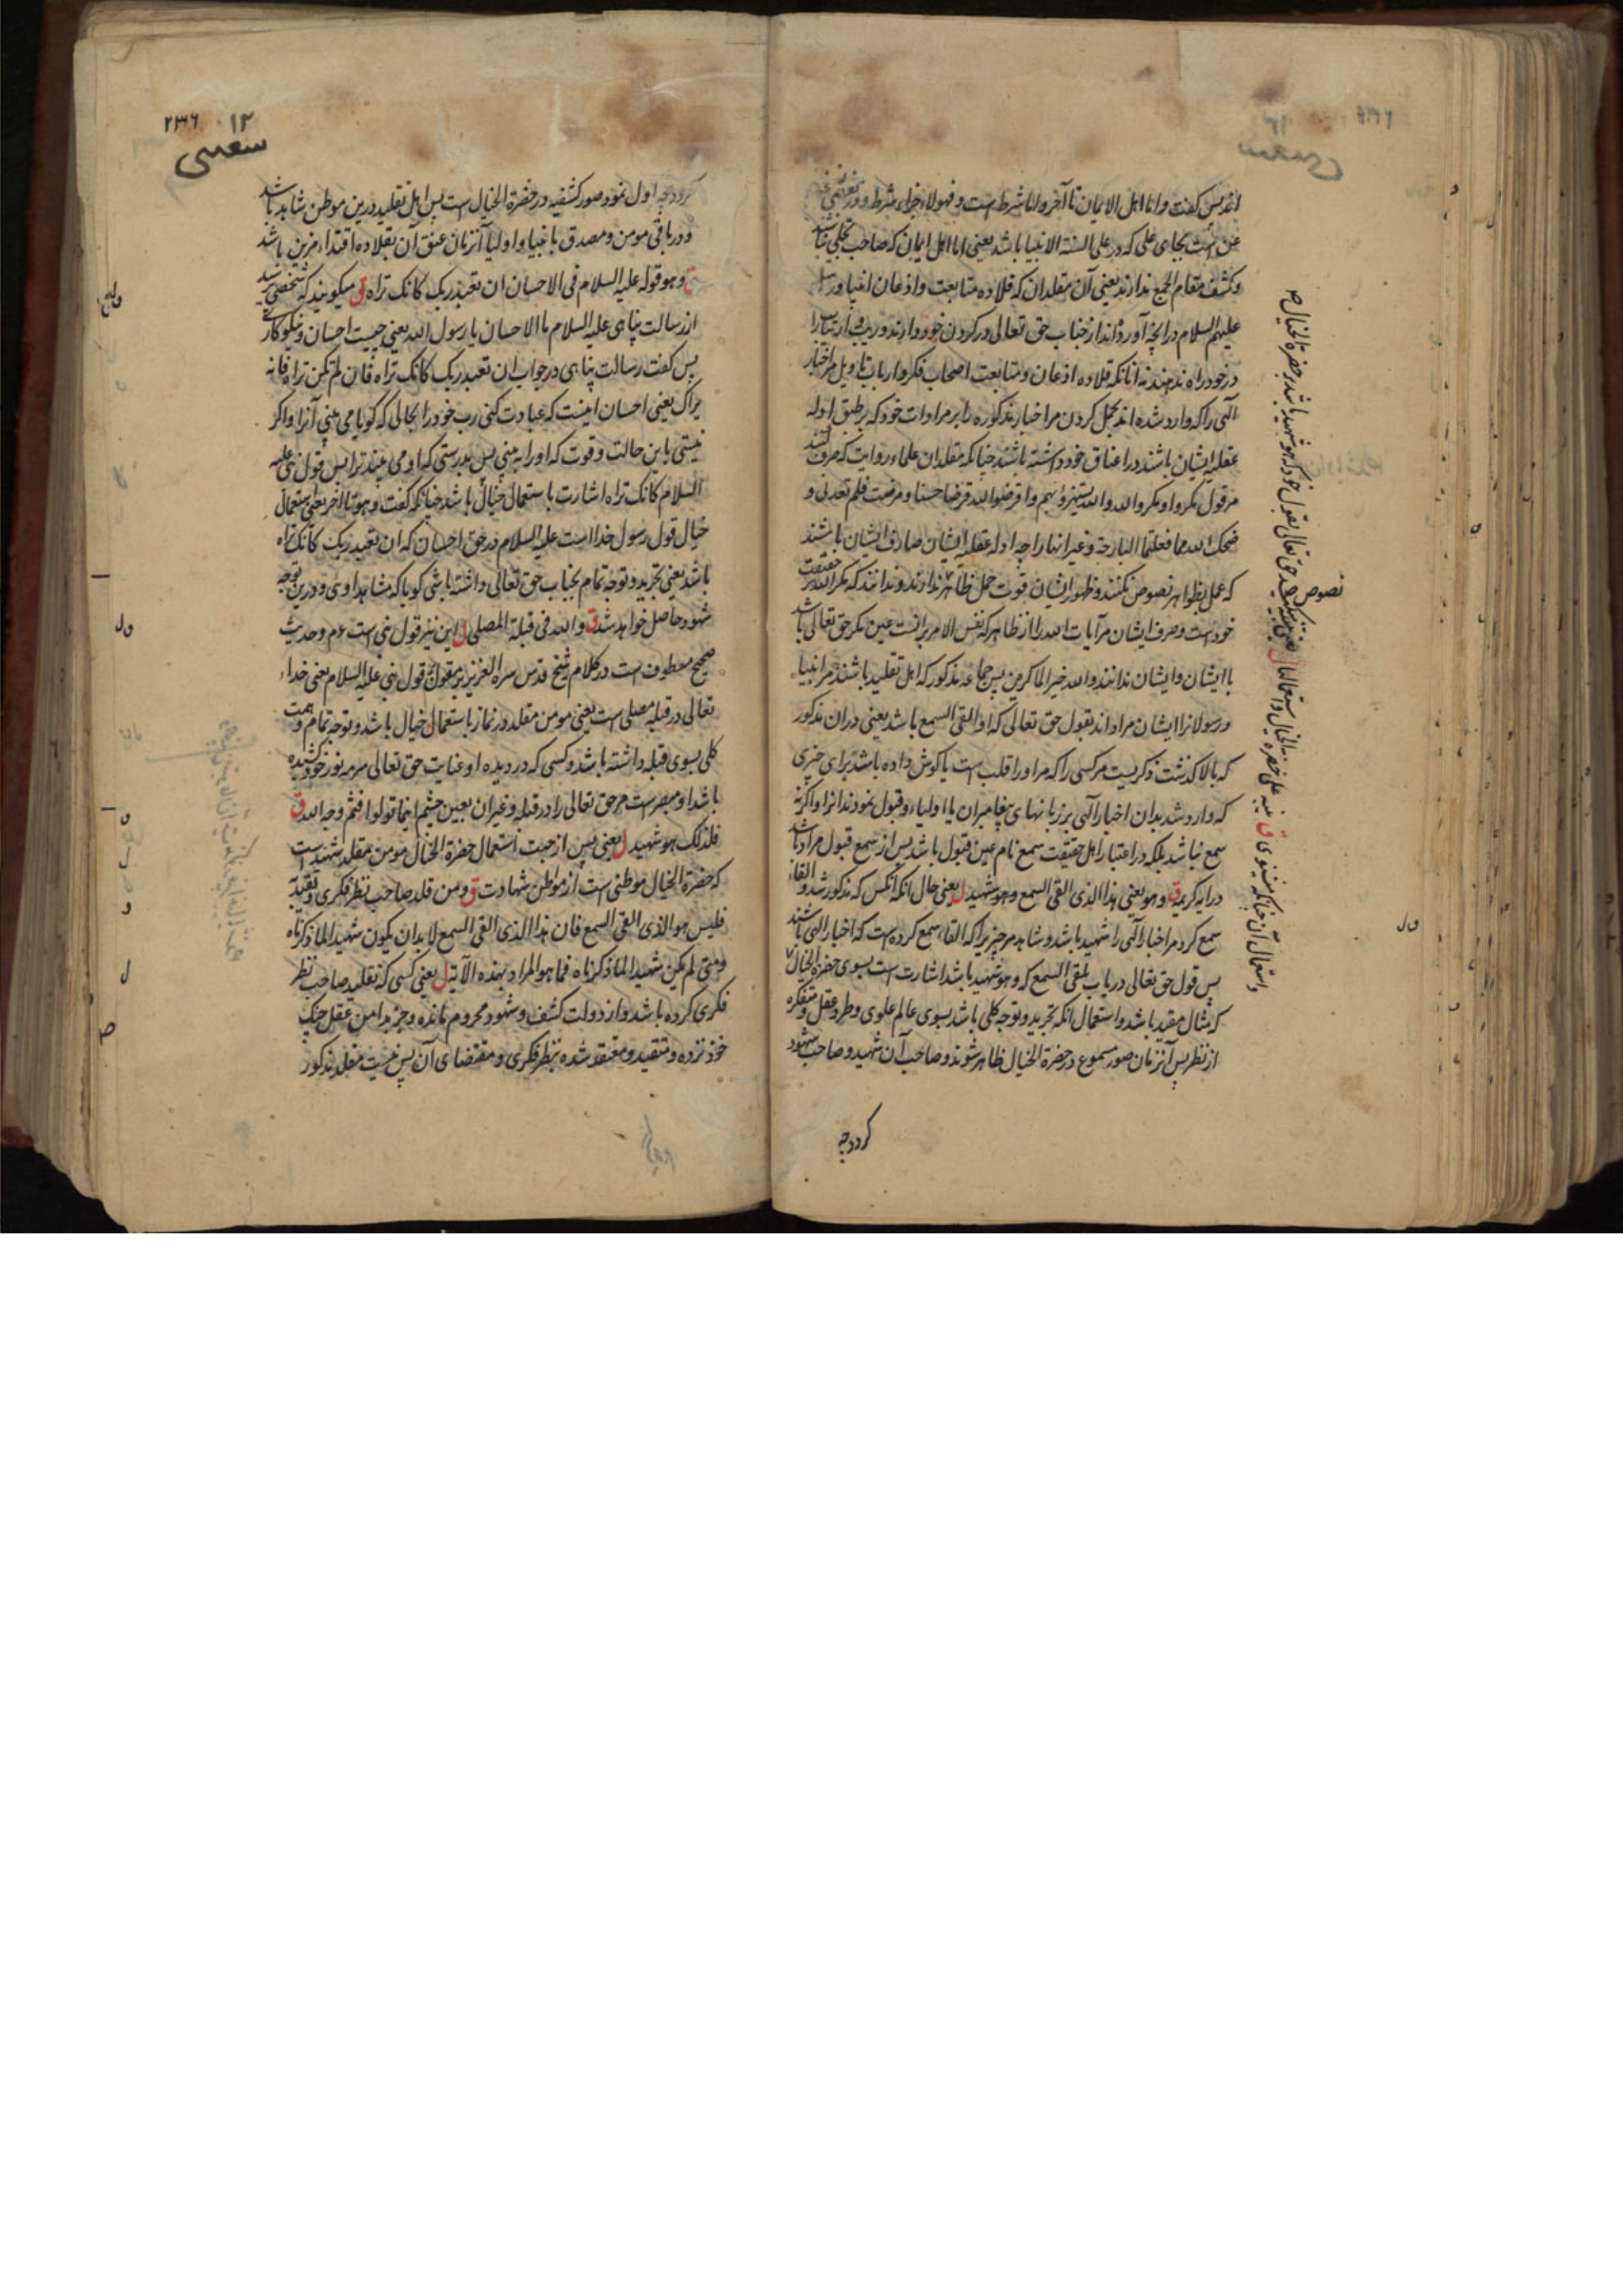 اندپس کفت واما اهل الایمان تا آخر واما شرطست و فهولاء جزاء شرط و در بعضی
عن است بجای علی که در علی السنة الانبیا باشد یعنی اما اهل ایمان که صاحب تجلی نباشند
و کشف مقام الجمع ندارند یعنی آن مقلدان که قلاده متابعت و اذعان انبیا و رسل
علیهم السلام در انچه آورده اند از جناب حق تعالی در کردن خود دارند و ریب و ارتیاب را
در خود راه ندهند نه آنانکه قلاده اذعان و متابعت اصحاب فکر و ارباب تاویل مر اخبار
الهی را که وارد شده اند بحمل کردن مر اخبار مذکوره را بر مرادات خود که بر طبق ادله
عقلیه ایشان باشند در اعناق خود داشته باشند چنانکه مقلدان علماء روایت که صرف کنند
مر قول مکروا و مکر الله و الله یستهزؤ بهم و اقرضوا الله قرضا حسنا و مرضت فلم تعدنی و
ضحک الله مما فعلتما البارحة و غیر انها را چه ادله عقلیه ایشان صارف ایشان باشند
که عمل بظواهر نصوص نکنند و ظهور ایشان قوت حمل ظاهر ندارند و ندانند که مکر الله در حقیقت
خودست و صرف ایشان مر آیات الله را از ظاهر که نفس الامر برانست عین مکر حق تعالی باشد
با ایشان و ایشان ندانند و الله خیر الماکرین پس جماعه مذکور که اهل تقلید باشند مر انبیاء
و رسولانرا ایشان مراد اند بقول حق تعالی که او القی السمع باشد یعنی دران مذکور
که بالا کذشت ذکریست مر کسی را که مر او را قلب است یا کوش داده باشد برای چیزی
که وارد شد بدان اخبار الهی بر زبانهای پیغامبران یا اولیاء و قبول نمودند انرا و اکرنه
سمع نباشد بلکه در اعتبار اهل حقیقت سمع نام عین قبول باشد پس از سمع قبول مراد باشد
در آیه کریمه ق و هو یعنی هذا الذی القی السمع و هو شهید ل یعنی حال آنکه آنکس که مذکور شد و القاء
سمع کرد مر اخبار الهی را شهید باشد و شاهد مر چیزیرا که القاء سمع کرده است که اخبار الهی باشند
پس قول حق تعالی در باب ملقی السمع که و هو شهید باشد اشارت است بسوی حضرة الخیال
که مثال مقید باشد و استعمال انکه تجرید و توجه کلی باشد بسوی عالم علوی و طرد عقل و متفکره
از نظر پس آنزمان صور مسموع در حضرة الخیال ظاهر شوند و صاحب آن شهید و صاحب شهود
کردد چه
نصوص
۲۳۶ ۱۲
سعسی
کردد چه اول نمود صور کشفیه در حضرة الخیال است پس اهل تقلید درین موطن شاهد باشد
و در باقی مومن و مصدق بانبیا و اولیا آنزمان عنق آن بقلاده اقتداء مزین باشد
ق و هو قوله علیه السلام فی الاحسان ان تعبد ربک کانک تراه ل میکویند که شخصی پرسید
از رسالت پناهی علیه السلام ما الاحسان یا رسول الله یعنی چیست احسان و نیکوکاری
پس کفت رسالت پناهی در جواب ان تعبد ربک کانک تراه فان لم تکن تراه فانه
یراک یعنی احسان اینست که عبادت کنی رب خود را بحالی که کویا می بینی آنرا و اکر
نیستی باین حالت و قوت که او را به بینی پس بدرستی که او می بیند ترا پس قول نبی علیه
السلام کانک تراه اشارت باستعمال خیال باشد چنانکه کفت و هو تا آخر یعنی استعمال
خیال قول رسول خدا است علیه السلام در حق احسان که ان تعبد ربک کانک تراه
باشد یعنی تجرید و توجه تمام بجناب حق تعالی داشته باشی کویا که مشاهد اویی و درین توجه
شهود حاصل خواهد شد ق و الله فی قبلة المصلی ل این نیز قول نبی است ءم و حدیث
صحیح معطوف است در کلام شیخ قدس سره العزیز بر مقول قول نبی علیه السلام یعنی خداء
تعالی در قبله مصلی است یعنی مومن مقلد در نماز باستعمال خیال باشد و توجه تمام و همت
کلی بسوی قبله داشته باشد و کسی که در دیده او عنایت حق تعالی سرمه نور خود کشیده
باشد او مبصرست مر حق تعالی را در قبله و غیر ان بعین چشم اینما تولوا فثم وجه الله ق
فلذلک هو شهید ل یعنی پس از جهت استعمال حضرة الخیال مومن مقلد شهیدست
که حضرة الخیال موطنی است از مواطن شهادت ق و من قلد صاحب نظر فکری و تقید به
فلیس هو الذی القی السمع فان هذا الذی القی السمع لا بد ان یکون شهیدا لما ذکرناه
و متی لم یکن شهیدا لما ذکرناه فما هو المراد بهذه الآیة ل یعنی کسی که تقلید صاحب نظر
فکری کرده باشد و از دولت کشف و شهود محروم مانده و جز بدامن عقل چنک
خود نزده و متقید و معتقد شده بنظر فکری و مقتضای آن پس نیست مقلد مذکور